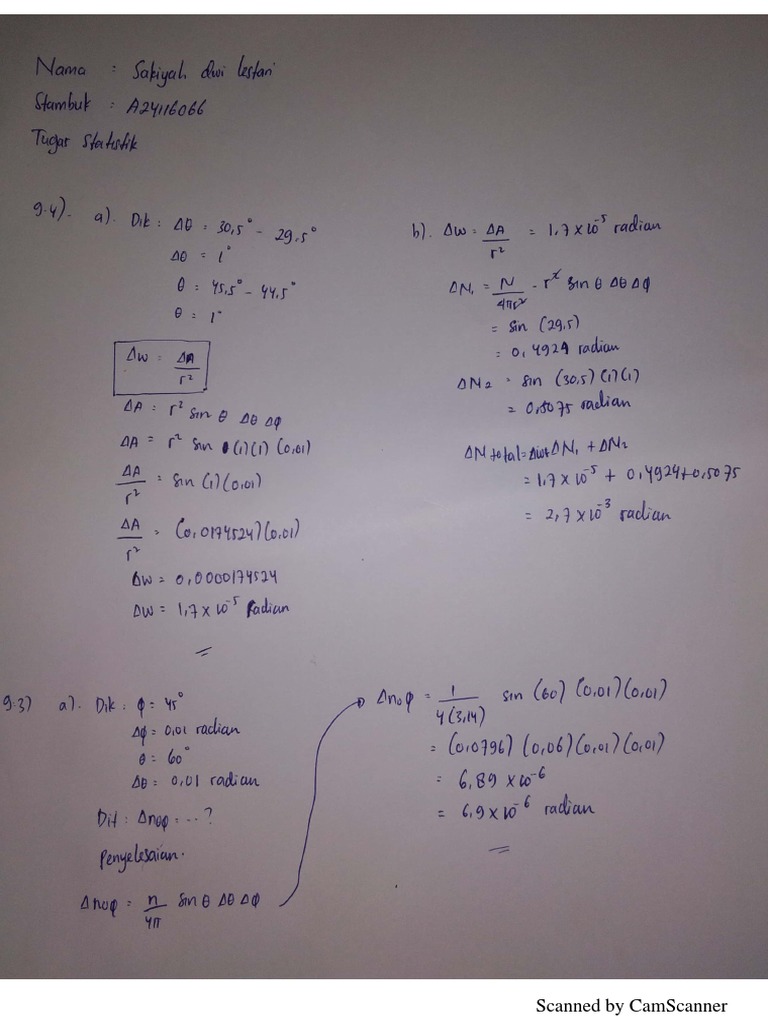 Nama : Sakiyah dwi lestari
Stambuk : A24116066
Tugas Statistik
9.4). a). Dik : Δθ = 30,5° - 29,5°
Δθ = 1°
θ = 45,5° - 44,5°
θ = 1°
Δw = ΔA / r²
ΔA = r² sin θ Δθ Δφ
ΔA = r² sin (1)(1) (0,01)
ΔA / r² = sin (1)(0,01)
ΔA / r² = (0,0174524)(0,01)
Δw = 0,0000174524
Δw = 1,7 x 10⁻⁵ radian
b). Δw = ΔA / r² = 1,7 x 10⁻⁵ radian
ΔN₁ = N / 4πr² - r² sin θ Δθ Δφ
= sin (29,5)
= 0,4924 radian
ΔN₂ = sin (30,5) (1) (1)
= 0,5075 radian
ΔN total = Δw + ΔN₁ + ΔN₂
= 1,7 x 10⁻⁵ + 0,4924 + 0,5075
= 2,7 x 10⁻³ radian
9.3) a). Dik : φ = 45°
Δφ = 0,01 radian
θ = 60°
Δθ = 0,01 radian
Dit : Δnθφ = ... ?
Penyelesaian.
Δnθφ = n / 4π sin θ Δθ Δφ
Δnθφ = 1 / 4(3,14) sin (60) (0,01)(0,01)
= (0,0796) (0,06)(0,01)(0,01)
= 6,89 x 10⁻⁶
= 6,9 x 10⁻⁶ radian
Scanned by CamScanner